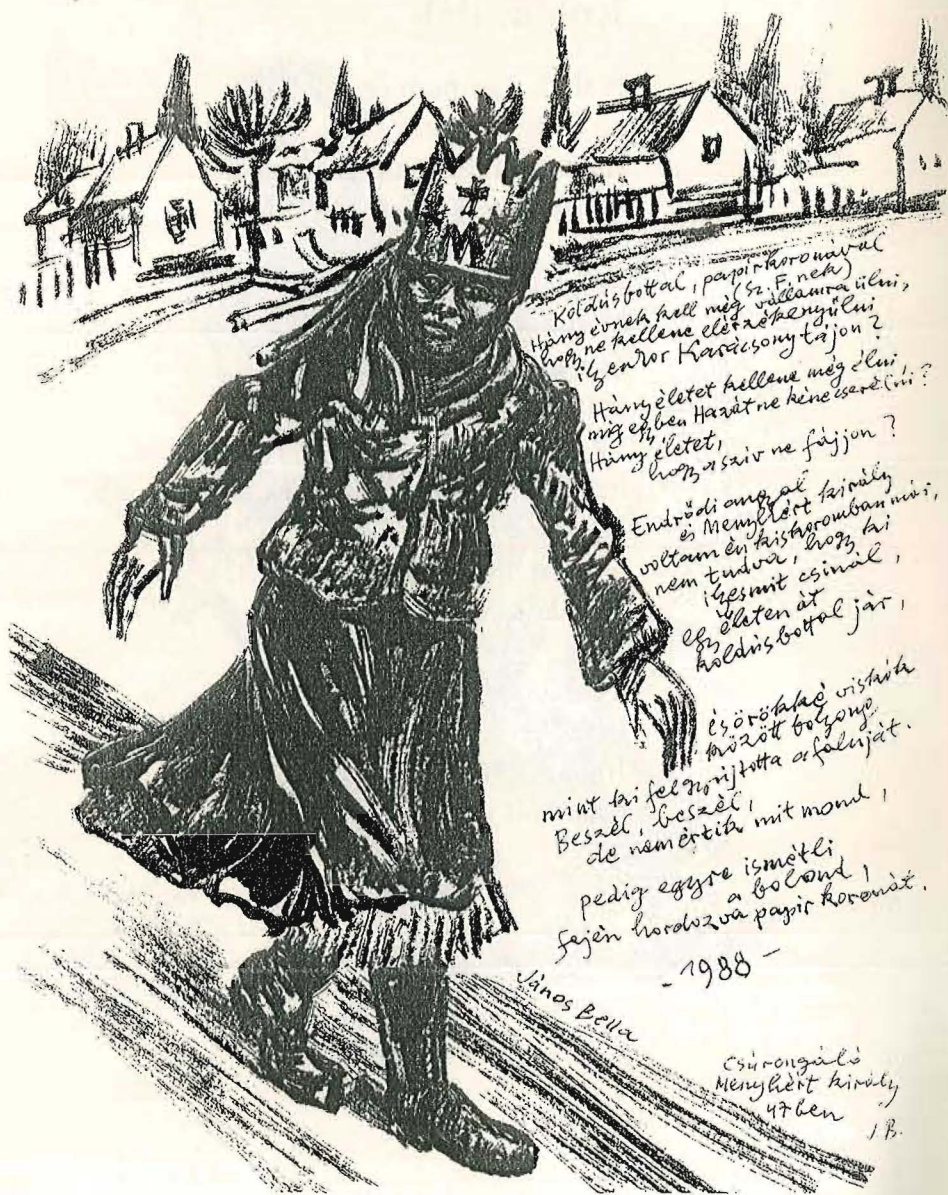 M
Koldúsbottal, papírkoronával
(Sz. F.nek)
Hány évnek kell még vállamra ülni,
hogy ne kellene elérzékenyülni
ilyenkor Karácsony tájon?
Hány életet kellene még élni,
míg egyben Hazát ne kéne cserélni?
Hány életet,
hogy a szív ne fájjon?
Endrődi angyal
és Menyhért király
voltam én kiskoromban már,
nem tudva, hogy ki
ilyesmit csinál,
egy életen át
koldúsbottal jár,
és örökké viskók
között bolyong,
mint ki felgyújtotta a faluját.
Beszél, beszél,
de nem értik mit mond,
pedig egyre ismétli
a bolond,
fején hordozva papír koronát.
- 1988 -
János Bella
Csúrongáló
Menyhért király
47 ben
J B.